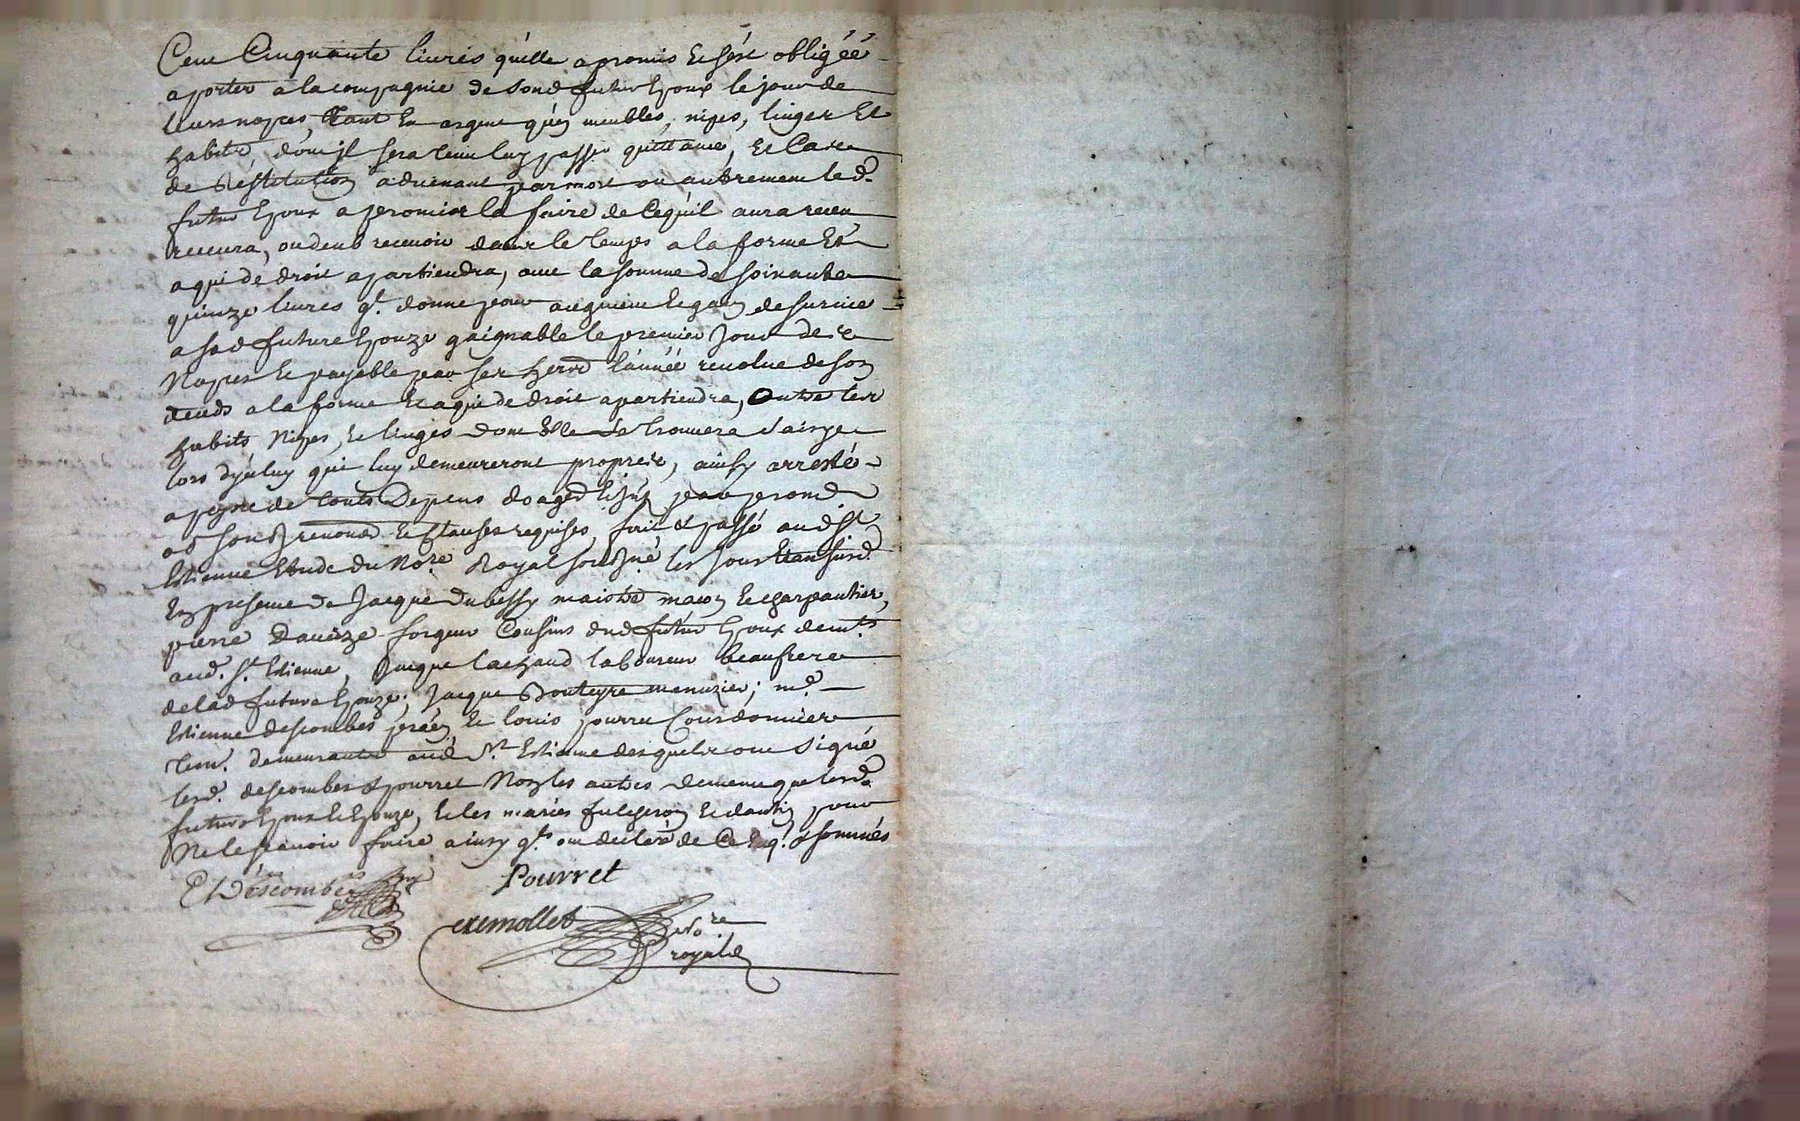 Cent Cinquante livres qu'elle a promis Et s'est obligéé
aporter a la compagnie de sond futur Epoux le jour de
leurs nopces, tant En argent qu'en meubles, nipes, linges Et
habits, dont jl sera tenu luy passer quittance, Et Cas
de Restitution advenant par mort ou autrement led.
futur Epoux a promis la faire de Cequil aura receu
recevra, ou deub recevoir dans le temps a la forme Et
a qui de droit apartiendra, avec la somme de soixante
quinze livres q.l donne pour augment Et gain de survie
a sad future Epouze gaignable le premier Jour de
Nopces Et payable par ses hers l'année revolue de son
deceds a la forme Et a qui de droit apartiendra, Outre les
habits Nipes, Et linges dont Elle Se trouvera saisye
lors d'jceluy qui luy demeureront propres, ainsy arresté
a peyne de touts Depens domages
renond Et Clauses requises, fait & passé aud St
Estienne Etude du No.re Royal soussné les Jour Et an susd.
En presence de Jacque dubessy maistre maçon Et charpantier,
pierre Daveze forgeur Cousins dud futur Epoux demts
aud. St. Estienne, Jacque lachaud laboureur beaufrere
de lad future Epouze; Jacque Bouteyre menuzier; m.e
Estienne descombes Et louis pourret Courdonnier
tesm. demeurants aud St Estienne desquels ont signé
lesd. descombes & pourret Non les autres ny lesd.
futurs Epoux Et Epouze, Et les mariés fulcheron Et dantin pour
Ne le sçavoir faire ainsy qls ont declaré de Ce Enq. & sommés
E Descombes
Pourret
cxemollet No.re
royal